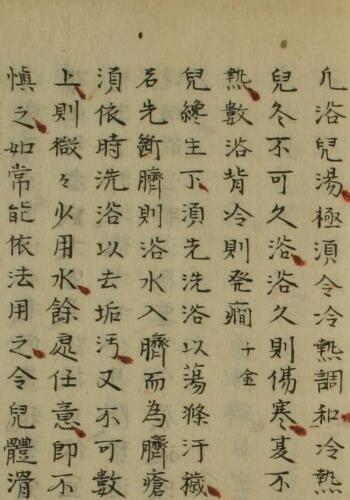 凡浴兒湯極須令冷熱調和冷熱
兒冬不可久浴浴久則傷寒夏不
熱數浴背冷則発癇千金
兒纔生下須先洗浴以蕩滌汙穢
若先斷臍則浴水入臍而為臍瘡
須依時洗浴以去垢汚又不可數
上則微々少用水餘是任意即不
慎之如常能依法用之令兒體滑